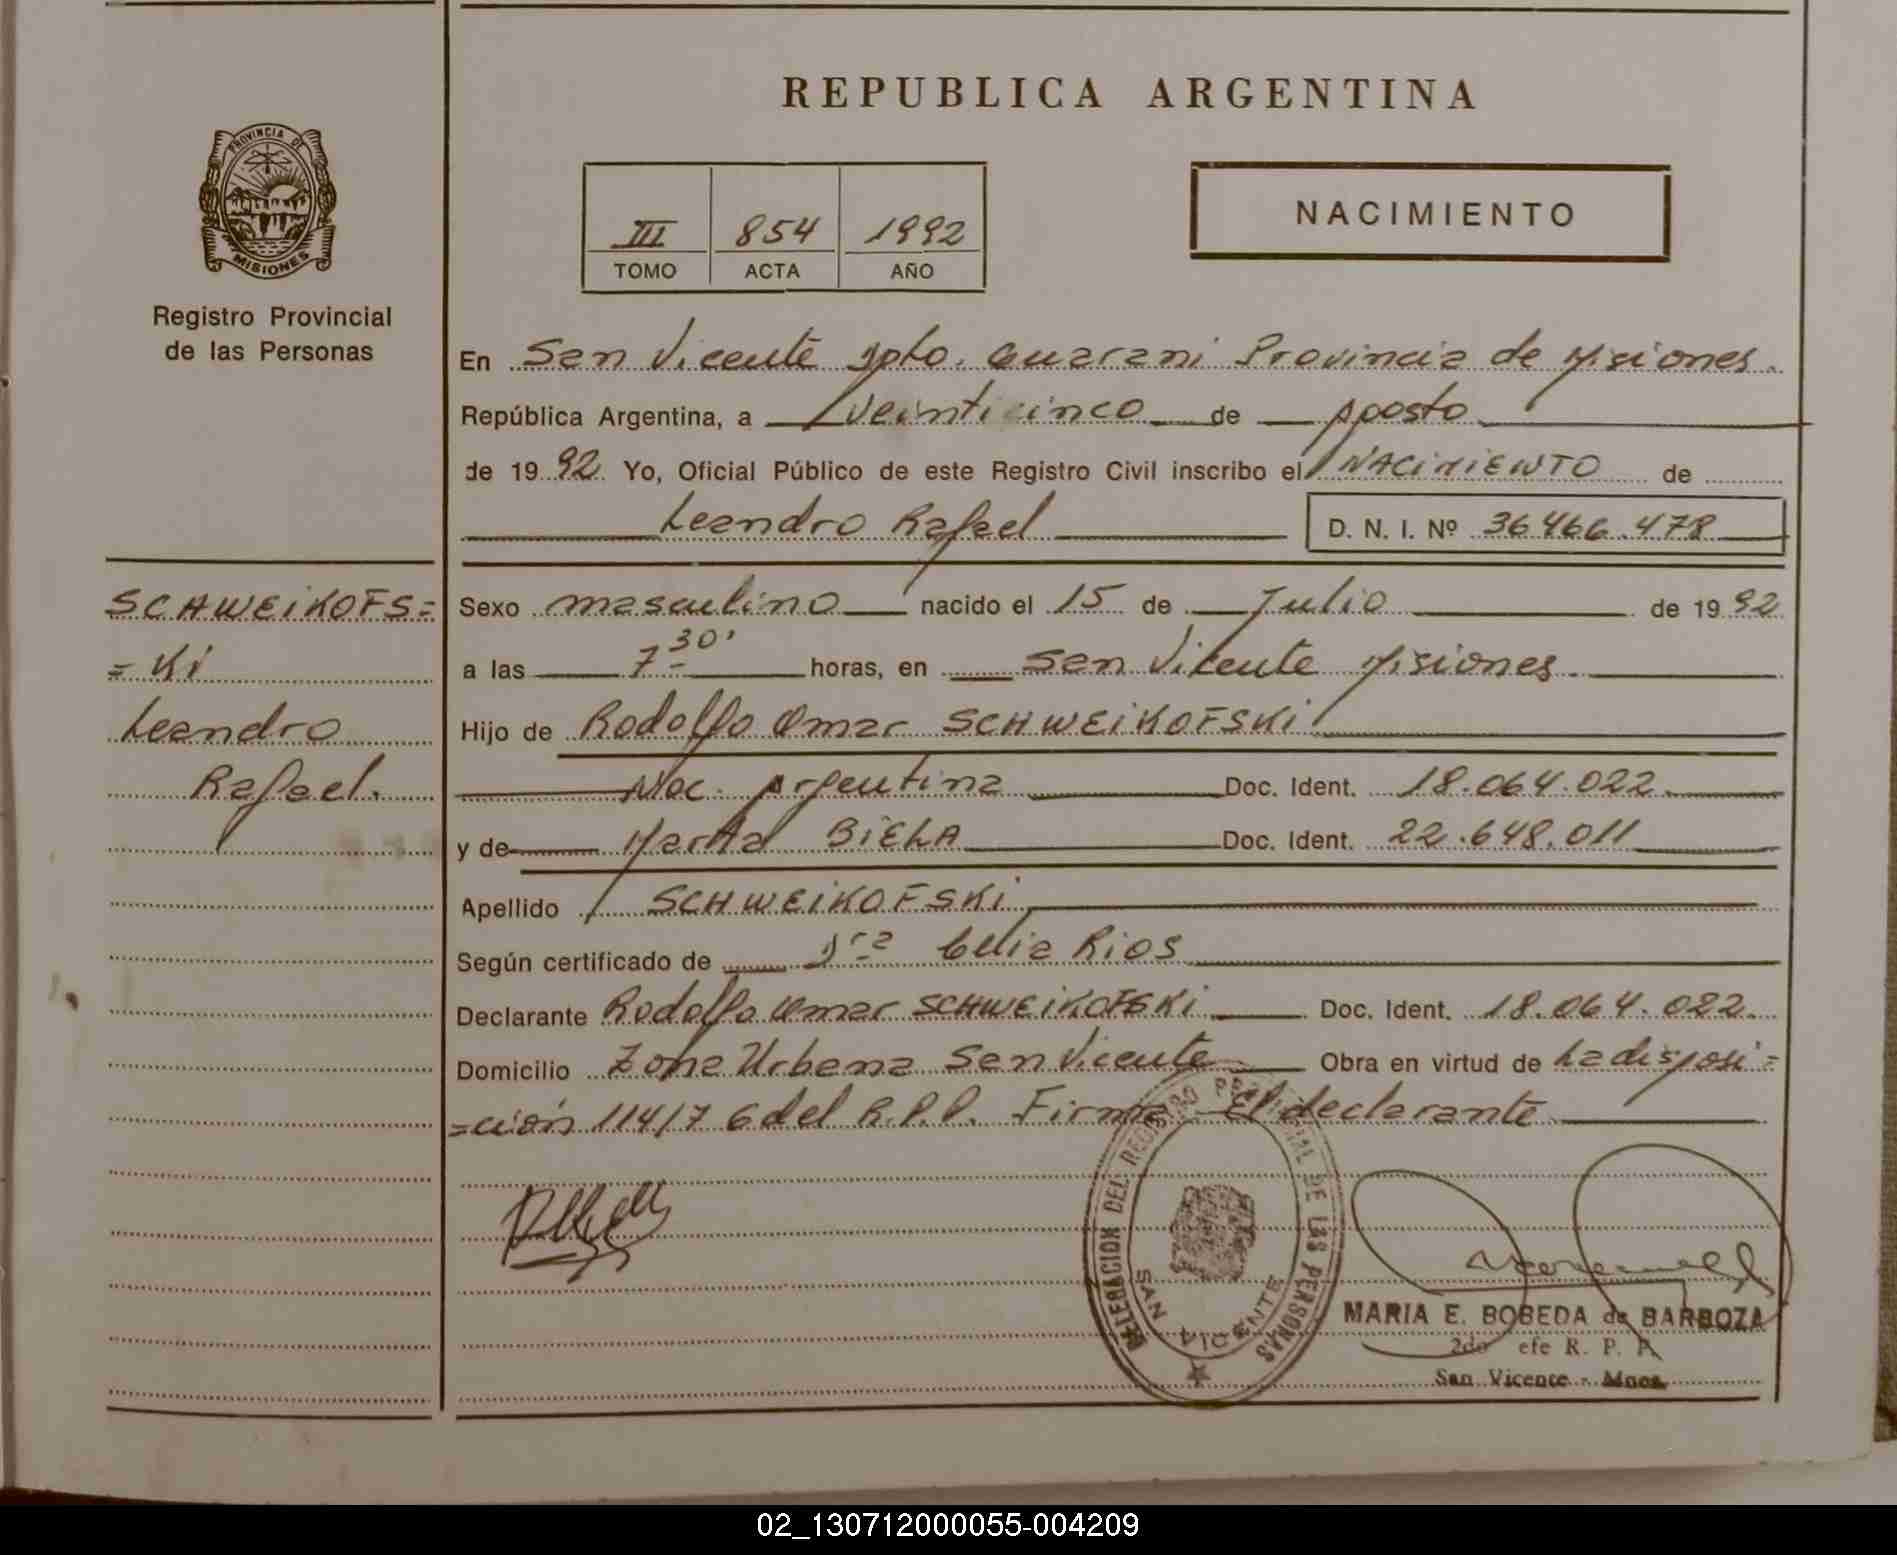 REPUBLICA ARGENTINA
PROVINCIA DE
MISIONES
Registro Provincial
de las Personas
III 854 1992
TOMO ACTA AÑO
NACIMIENTO
En San Vicente Dpto. Guarani Provincia de Misiones.
República Argentina, a veinticinco de Agosto
de 1992 Yo, Oficial Público de este Registro Civil inscribo el NACIMIENTO de
Leandro Rafael D. N. I. Nº 36466.478
SCHWEIKOFS=
=Ki
Leandro
Rafael.
Sexo masculino nacido el 15 de Julio de 1992
a las 7-30' horas, en San Vicente Misiones.
Hijo de Rodolfo Omar SCHWEiKOFSKi
Nac. Argentina Doc. Ident. 18.064.022.
y de Marta BiELA Doc. Ident. 22.648.011
Apellido SCHWEiKOFSKi
Según certificado de Dra Celia Rios
Declarante Rodolfo Omar SCHWEiKOFSKi Doc. Ident. 18.064.022.
Domicilio Zona Urbana San Vicente Obra en virtud de La disposi=
=ción 114/76 del R.P.P. Firma El declarante
DELEGACION DEL REGISTRO PROVINCIAL DE LAS PERSONAS
SAN VICENTE
MARIA E. BOBEDA de BARBOZA
2do efe R. P. P.
San Vicente - Mnes.
02_130712000055-004209